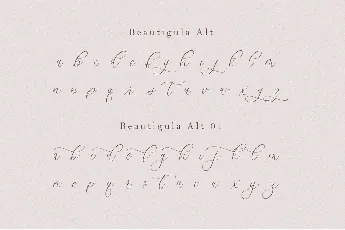 Beautigula Alt
a b c d e f g h i j k l m
n o p q r s t u v w x y z
Beautigula Alt 01
a b c d e f g h i j k l m
n o p q r s t u v w x y z